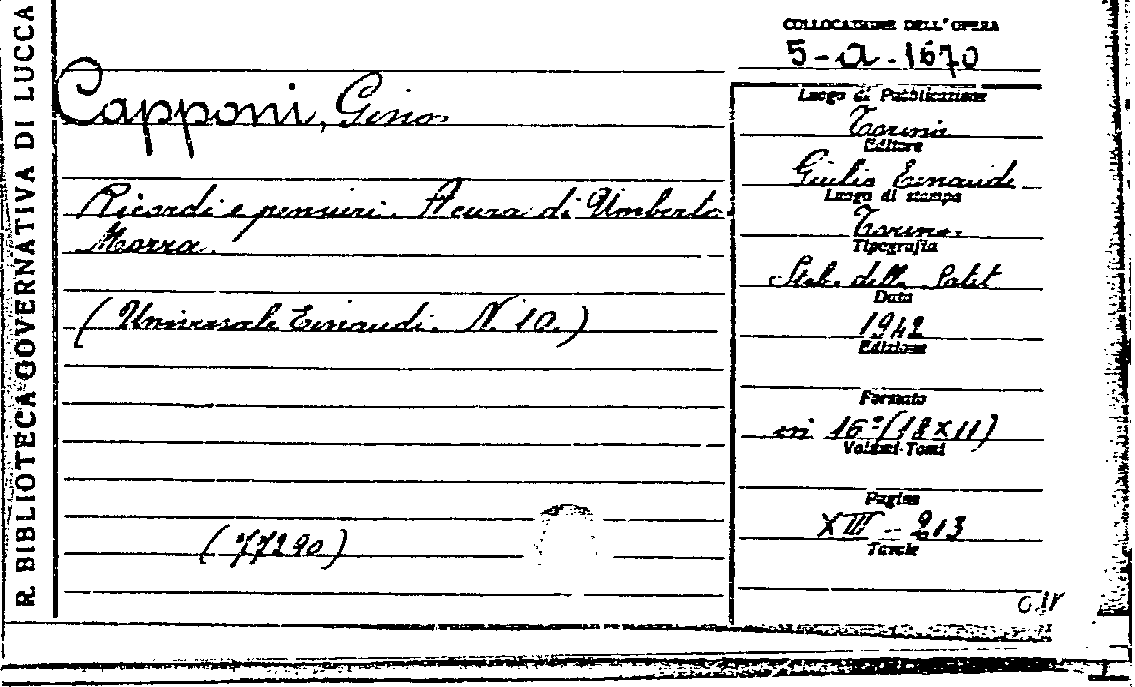 R. BIBLIOTECA GOVERNATIVA DI LUCCA
COLLOCAZIONE DELL'OPERA
5-a-1670
Capponi, Gino
Ricordi e pensieri. A cura di Umberto
Morra.
(Universale Einaudi. N. 10.)
(77290)
Luogo di Pubblicazione
Torino
Editore
Giulio Einaudi
Luogo di stampa
Torino.
Tipografia
Stab. della
Data
1942
Edizione
Formato
in 16° (18x11)
Volumi-Tomi
Pagine
XIII - 213
Tavole